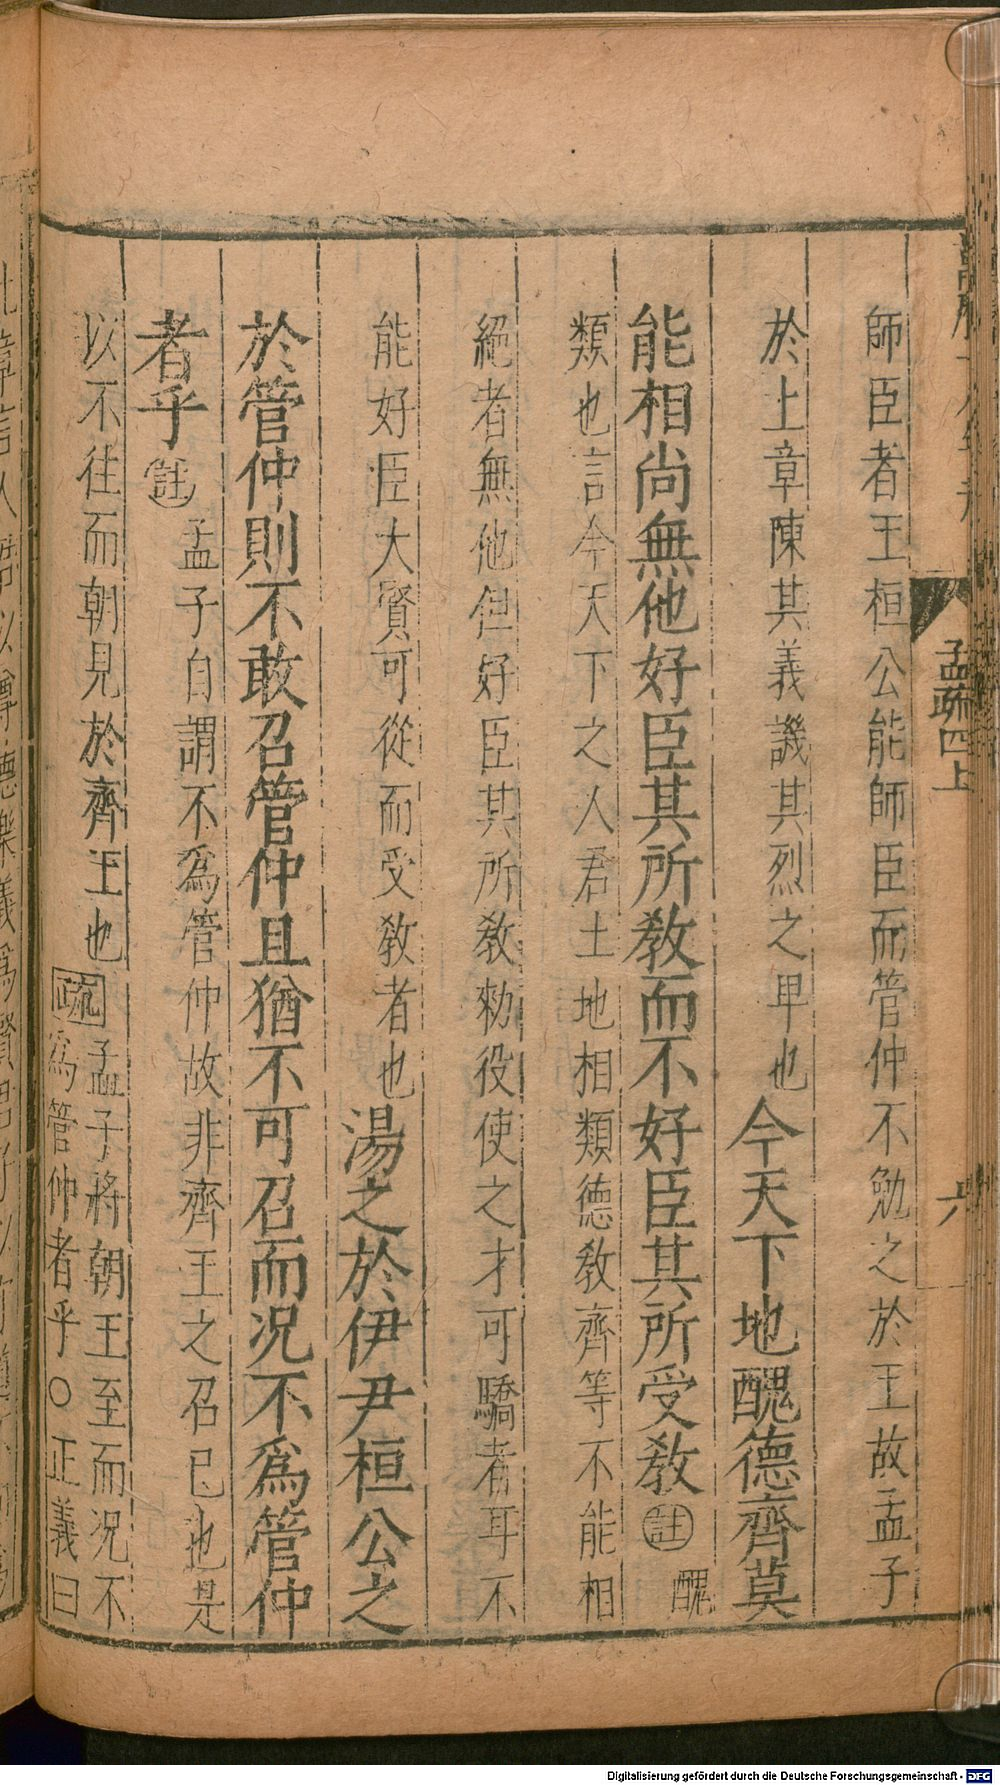 孟疏四上
六
師臣者王桓公能師臣而管仲不勉之於王故孟子
於上章陳其義譏其烈之卑也今天下地醜德齊莫
能相尚無他好臣其所教而不好臣其所受教註醜
類也言今天下之人君土地相類德教齊等不能相
絕者無他但好臣其所教勑役使之才可驕者耳不
能好臣大賢可從而受教者也湯之於伊尹桓公之
於管仲則不敢召管仲且猶不可召而况不為管仲
者乎註孟子自謂不為管仲故非齊王之召已也是
以不往而朝見於齊王也疏孟子將朝王至而况不
為管仲者乎○正義曰
Digitalisierung gefördert durch die Deutsche Forschungsgemeinschaft - DFG